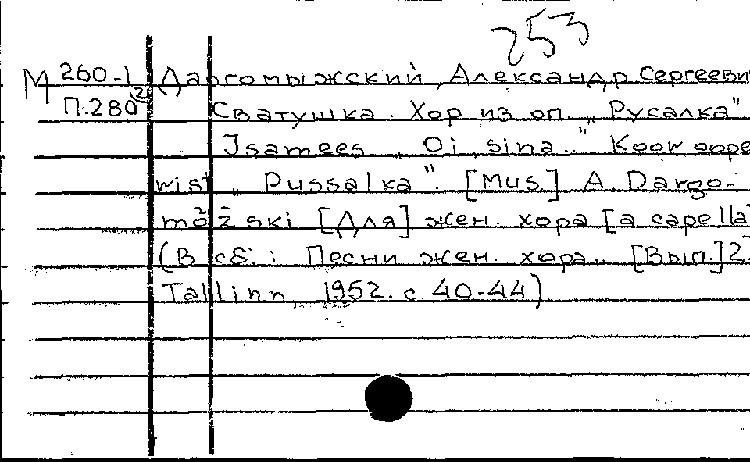 253
М 260-1 Даргомыжский, Александр Сергееви
П.280² Сватушка. Хор из оп. „Русалка"
Isamees „Oi, sina." Koor oope
rist „Russalka". [Mus.] A. Dargo-
mõžski [Для] жен. хора [a capella]
(В сб.: Песни жен. хора. [Вып.] 2.
Tallinn, 1952. с 40-44)